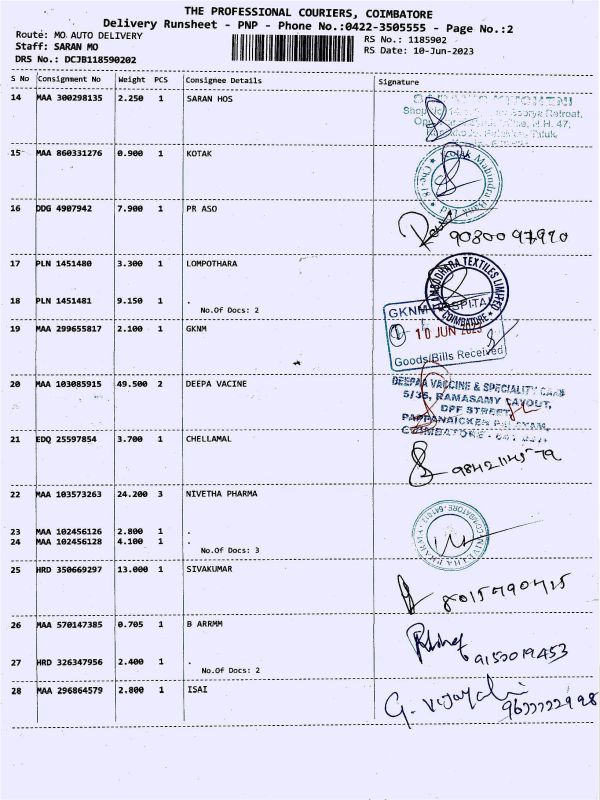 THE PROFESSIONAL COURIERS, COIMBATORE
Delivery Runsheet - PNP - Phone No.:0422-3505555 - Page No.:2
Route: MO AUTO DELIVERY
Staff: SARAN MO
DRS No.: DCJB118590202
RS No.: 1185902
RS Date: 10-Jun-2023
S No Consignment No Weight PCS Consignee Details Signature
14 MAA 300298135 2.250 1 SARAN HOS
15 MAA 860331276 0.900 1 KOTAK
16 DDG 4907942 7.900 1 PR ASO
9080097920
17 PLN 1451480 3.300 1 LOMPOTHARA
TEXTILES LIMITED
COIMBATORE
18 PLN 1451481 9.150 1 .
No.Of Docs: 2
19 MAA 299655817 2.100 1 GKNM
GKNM HOSPITAL
10 JUN 2023
Goods/Bills Received
20 MAA 103085915 49.500 2 DEEPA VACINE
DEEPAA VACCINE & SPECIALITY CARE
5/35, RAMASAMY LAYOUT,
DPF STREET,
PAPPANAICKEN PALAYAM,
COIMBATORE
21 EDQ 25597854 3.700 1 CHELLAMAL
22 MAA 103573263 24.200 3 NIVETHA PHARMA
23 MAA 102456126 2.800 1 .
24 MAA 102456128 4.100 1 .
No.Of Docs: 3
25 HRD 350669297 13.000 1 SIVAKUMAR
8015490415
26 MAA 570147385 0.705 1 B ARRMM
27 HRD 326347956 2.400 1 .
No.Of Docs: 2
9150019453
28 MAA 296864579 2.800 1 ISAI